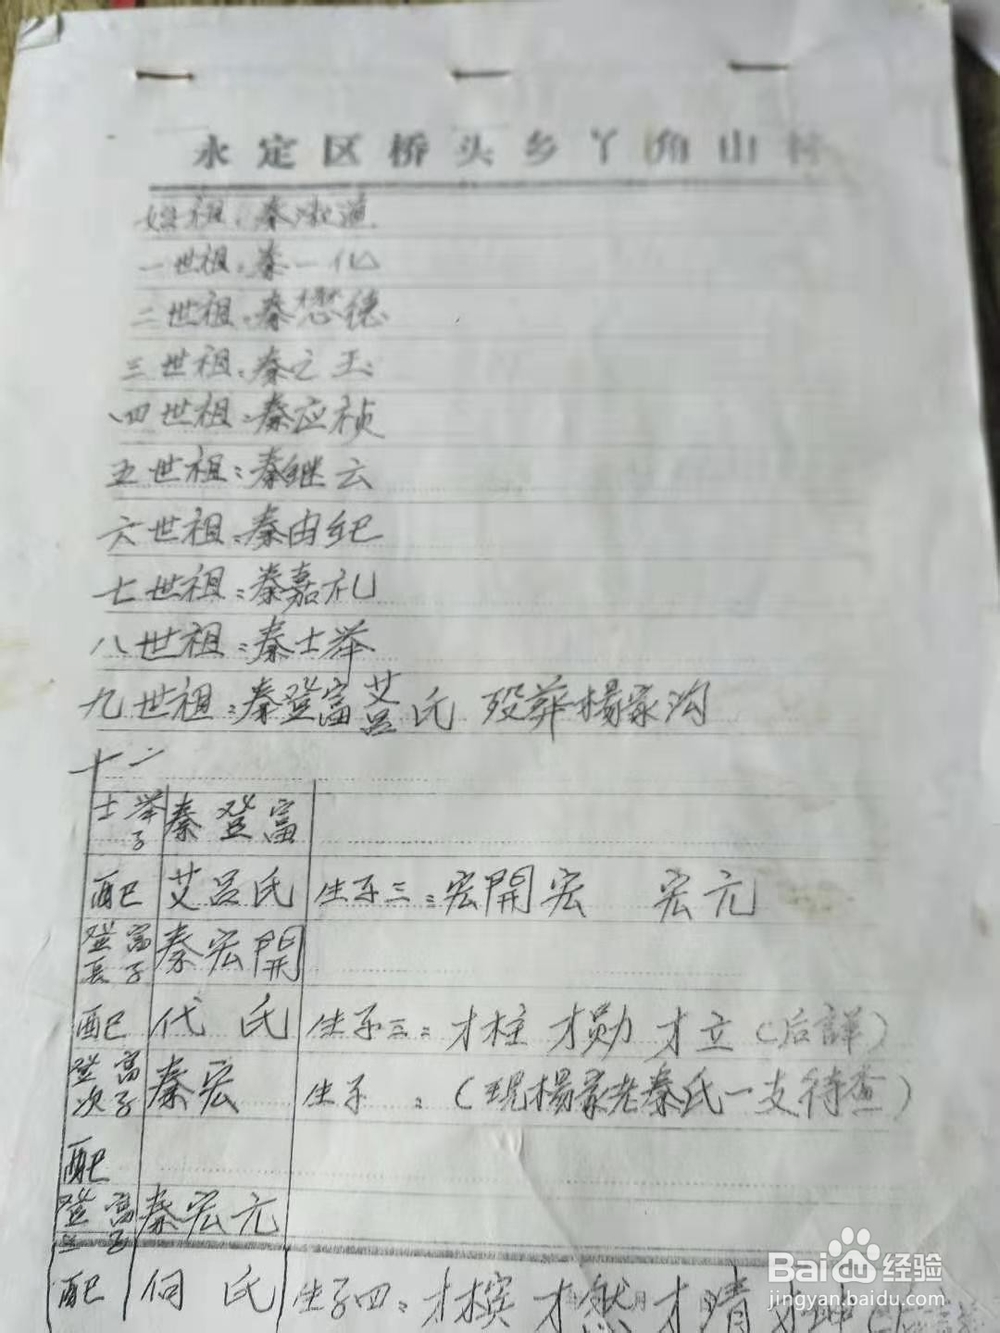 永定区桥头乡丫角山村
始祖：秦湘道
一世祖：秦一化
二世祖：秦懋德
三世祖：秦之玉
四世祖：秦应祯
五世祖：秦继云
六世祖：秦由纪
七世祖：秦嘉礼
八世祖：秦士举
九世祖：秦登富艾吕氏 殁葬楊家沟
十二
士举子 秦登富
配 艾吕氏 生子三：宏開宏 宏元
登富長子 秦宏開
配 代氏 生子三：才柱 才勋 才立（后詳）
登富次子 秦宏 生子：（現楊家老秦氏一支待查）
配
登富三子 秦宏元
配 何氏 生子四：才模 才然 才清 才坤
Baidu经验
jingyan.baidu.com